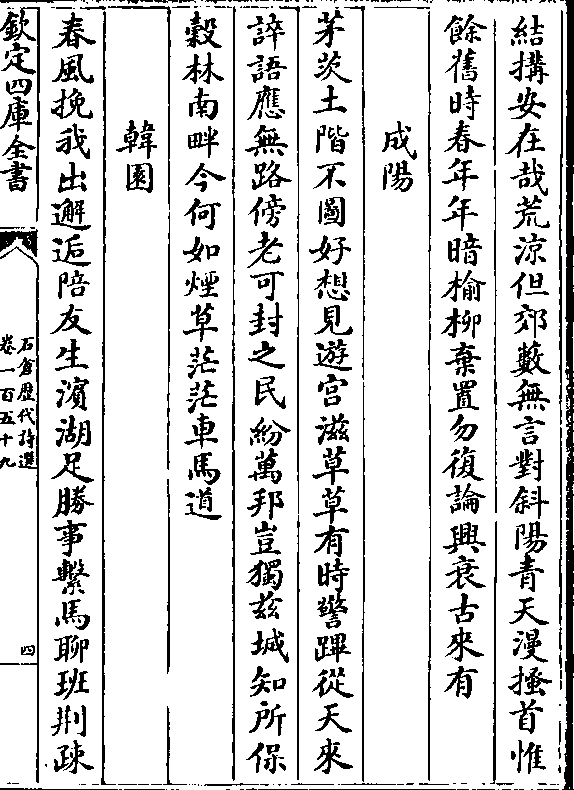 結搆安在哉荒涼但郊藪無言對斜陽青天漫搔首惟
餘舊時春年年暗榆柳棄置勿復論興衰古來有
成陽
茅茨土階不圖好想見遊宮滋草草有時警蹕從天來
誶語應無路傍老可封之民紛萬邦豈獨玆城知所保
穀林南畔今何如煙草茫茫車馬道
韓園
春風挽我出邂逅陪友生濱湖足勝事繫馬聊班荆疎
欽定四庫全書
石倉歷代詩選
卷一百五十九
四